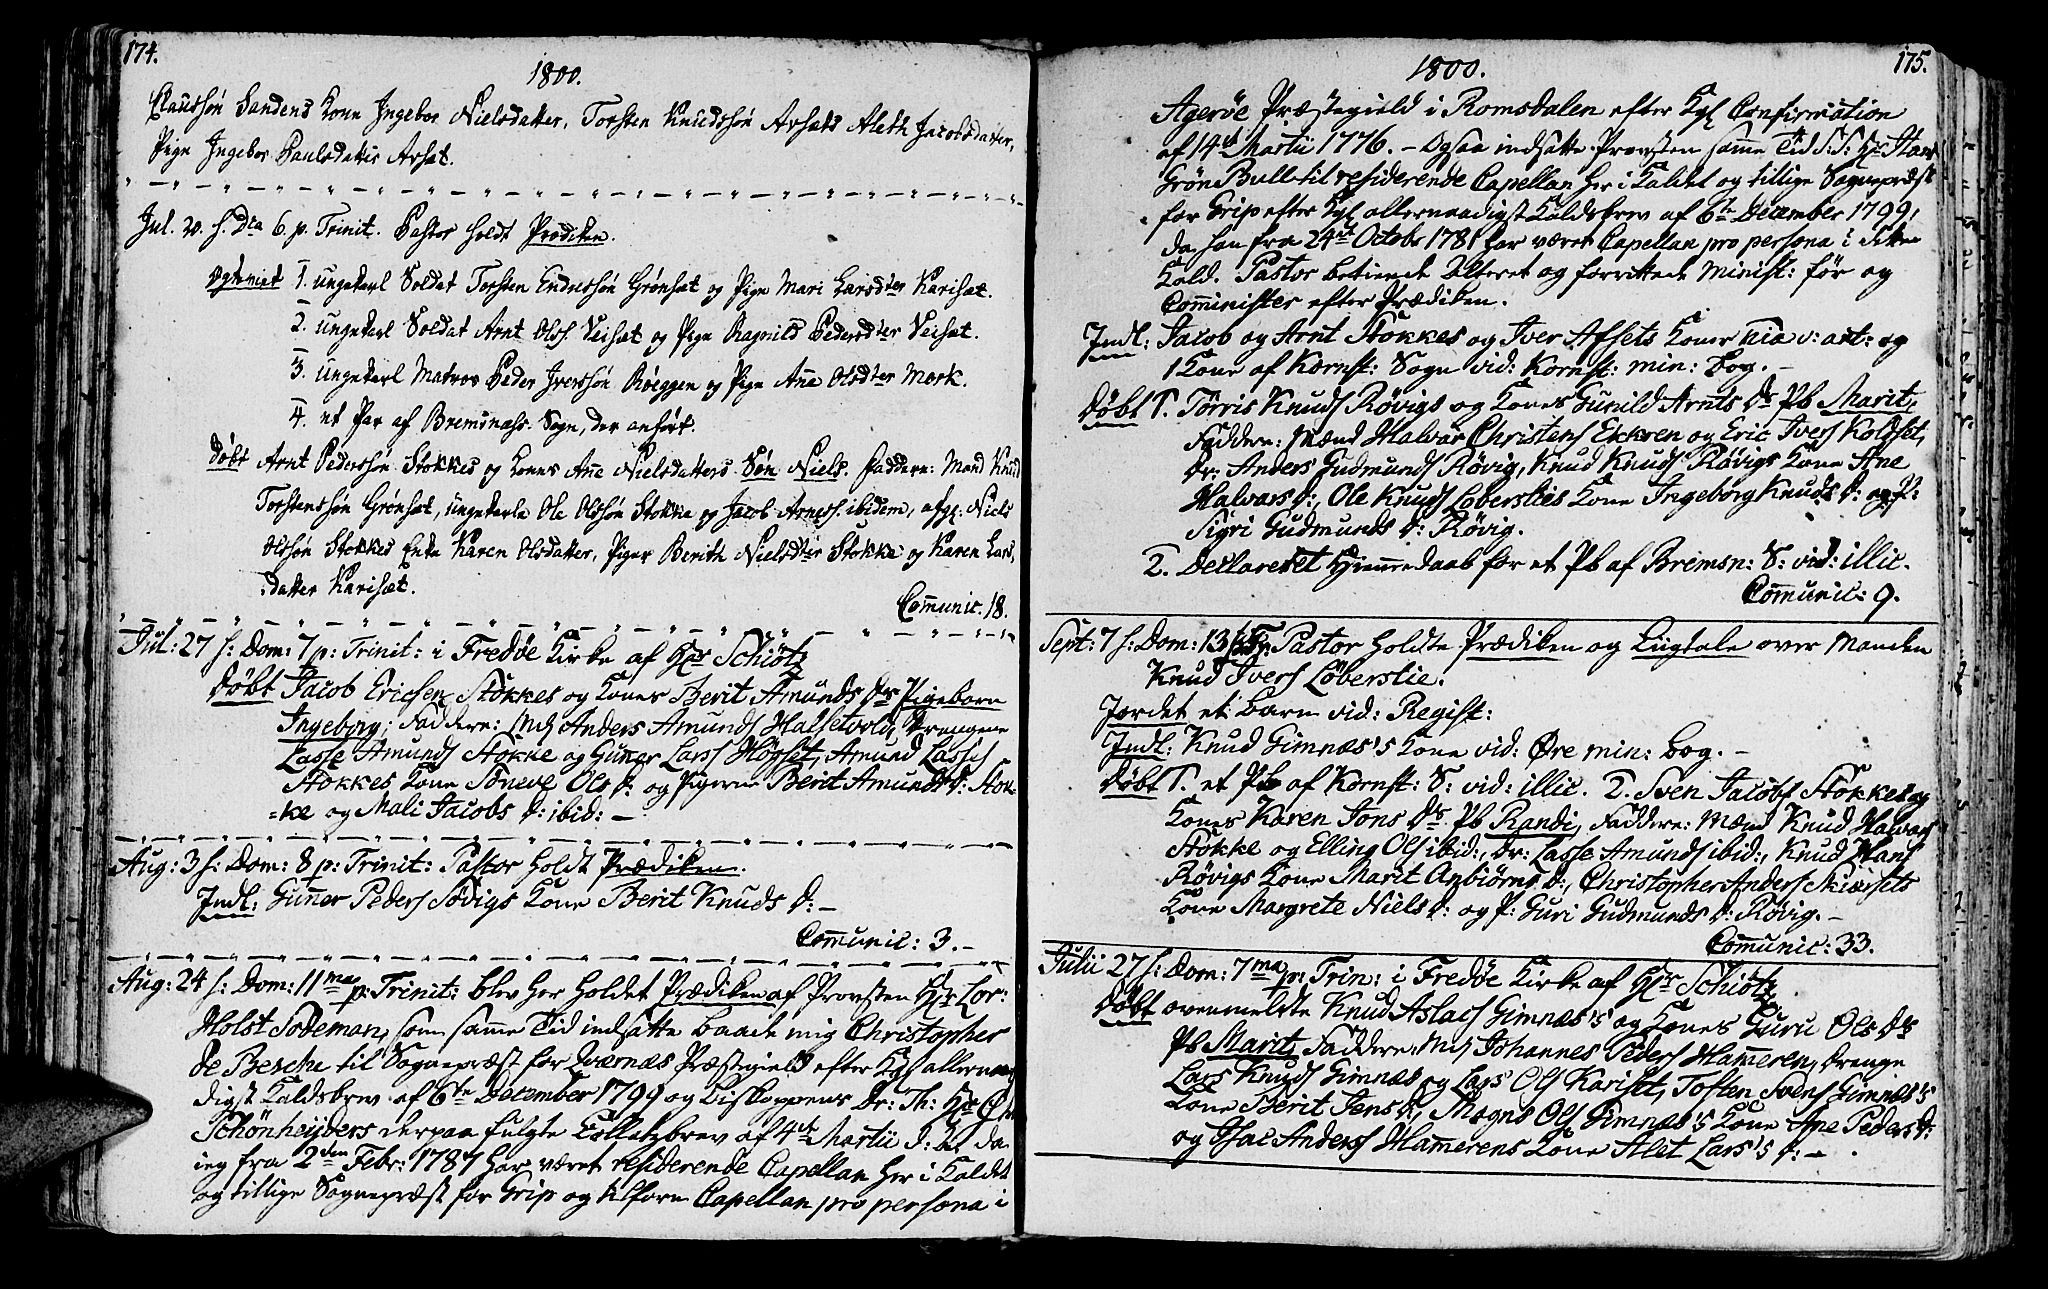 174.
1800.
Claussøn Sandens Kone Ingebor Nielsdatter, Torsten Knudssøn Arsæts Aleth Jacobsdatter,
Pige Ingebor Paulsdatter Arsæt.
Jul. 20. h. Dca 6. p. Trinit. Pastor holdt Prædiken.
1. ungekarl Soldat Torsten Endressøn Grønsæt og Pige Mari Larsdter Karisæt.
2. ungekarl Soldat Arnt Olss. Veisæt og Pige Ragnild Pedersdter Veisæt.
3. ungekarl Matros Peder Iverssøn Røeggen og Pige Ane Olsdter Mork.
4. et Par af Bremsnæss Sogn, der anført.
Døbt Arnt Pederssøn Stokkes og Kones Ane Nielsdatters Søn Niels. Faddere: Mand Knud
Torstenssøn Grønsæt, ungekarle Ole Olssøn Stokke og Jacob Arness. ibidem, afg: Niels
Olssøn Stokkes Enke Karen Olsdatter, Piger Berith Nielsdter Stokke og Karen Lars
datter Karisæt.
Comunic. 18.
Jul: 27 h: Dom: 7 p: Trinit: i Fredøe Kirke af Hr Schiøtz
Døbt Jacob Ericsen Stokkes og Kones Berit Amunds Dr Pigebarn
Ingeborg; Faddere: Md Anders Amunds Halsetvold, Drengene
Lasse Amunds Stokke og Guner Larss Høgset, Amund Lasses
Stokkes Kone Søneve Ols D: og Pigerne Berit Amunds D: Stok-
=ke og Mali Jacobs D: ibid: -
Aug: 3 h: Dom: 8 p: Trinit: Pastor holdt Prædiken.
Indl: Guner Peders Sødigs Kone Berit Knuds D: -
Comunic: 3. -
Aug: 24 h: Dom: 11ma p: Trinit: blev her holdet Prædiken af Provsten Hr Lor:
Holst Sodeman, som samme Tid indsatte baade mig Christopher
de Besche til Sognepræst for Qværnæs Præstegield efter Kgl allernaa
digst Kaldsbrev af 6te December 1799 og Biskoppens Dr: Th: Hr
Schönheyders derpaa fulgte Collatzbrev af 4de Martii da
ieg fra 2den Febr: 1787 har været residerende Capellan her i Kaldet
og tillige Sognepræst for Grip og tilforn Capellan pro persona i
175.
1800.
Agerøe Præstegield i Romsdalen efter Kgl Confirmation
af 14de Martii 1776. - Ogsaa indsatte Provsten samme Tid S: T: Hr
Grøn Bull til residerende Capellan her i Kaldet og tillige Sognepræst
for Grip efter Kgl allernaadigst Kaldsbrev af 6te December 1799,
da han fra 24de Octobr 1781 har været Capellan pro persona i dette
Kald. Pastor betiente Alteret og forrettede Minist: før og
Cominister efter Prædiken.
Indl: Jacob og Arnt Stokkes og Iver Afsets Koner og
1 Kone af Kornst: Sogn vid: Kornst: min: bog. -
Døbt 1. Tørris Knuds Røvigs og Kones Gunild Arnts Ds Pb Marit,
Faddere: Mænd Halvar Christens Ekkren og Eric Ivers Koldset,
Dr: Anders Gudmunds Røvig, Knud Knuds Røvigs Kone Ane
Halvars D:, Ole Knuds Løbersliés Kone Ingeborg Knuds D: og P:
Sigri Gudmunds D: Røvig.
2. Declareret Hiemmedaab for et Pb af Bremsn: S: vid: illic.
Comunic: 9.
Sept: 7 h: Dom: 13 p: Tr: Pastor holdte Prædiken og Liigtale over Manden
Knud Ivers Løberslie.
Jordet et barn vid: Regist:
Indl: Knud Gimnæs's Kone vid: Øre min: bog. -
Døbt 1. et Pb af Kornst: S: vid: illic. 2. Sven Jacobs Stokkes og
Kones Karen Jons Ds Pb Randi, Faddere: Mænd Knud Halvars
Stokke og Elling Ols ibid:, Dr: Lasse Amunds ibid:, Knud Hans
Røvigs Kone Marit Anbiørns D:, Christopher Anders Skiærsets
Kone Margrete Niels D: og P: Guri Gudmunds D: Røvig. -
Comunic: 33.
Julii 27 h: Dom: 7ma p: Trin: i Fredøe Kirke af Hr Schiøtz
Døbt ovenmeldte Knud Aslacs Gimnæs's og Kones Guru Ols Ds
Pb Marit, Faddere, Md Johannes Peders Hameren, Drenge
Lars Knuds Gimnæs og Lars Ols Kariset, Tosten Svens Gimnæs's
Kone Berit Jens D:, Mogns Ols Gimnæs's Kone Ane Peders D:
og Isac Anders Hamerens Kone Alet Lars's D: -